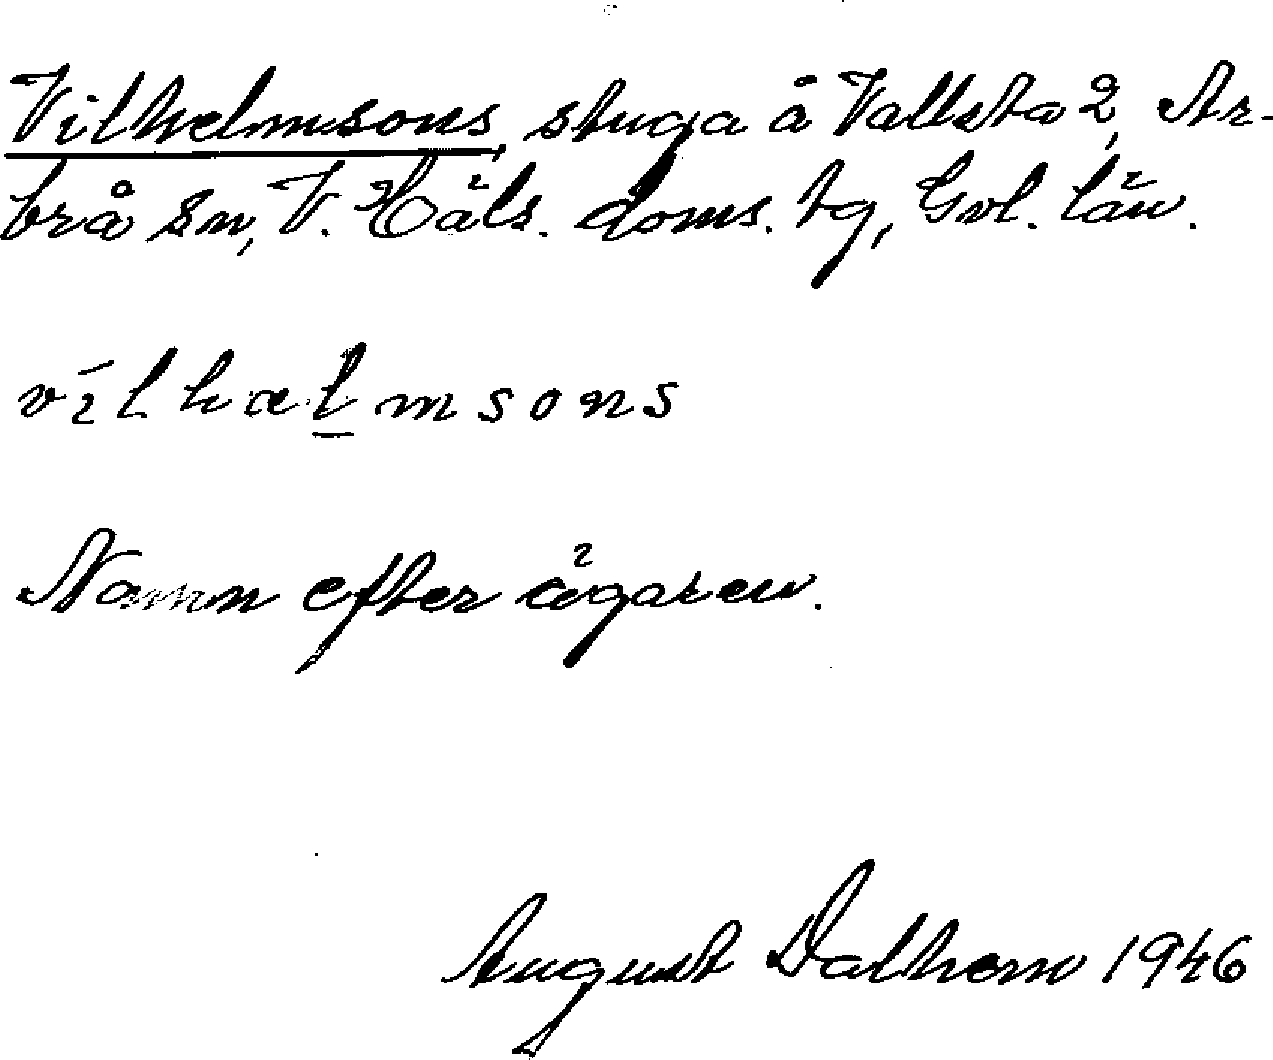 Vilhelmsons, stuga å Vallsta 2, Ar-
brå sn, V. Häls. doms. tg, Gvl. län.
vílhælmsons
Namn efter ägaren.
August Dalhem 1946